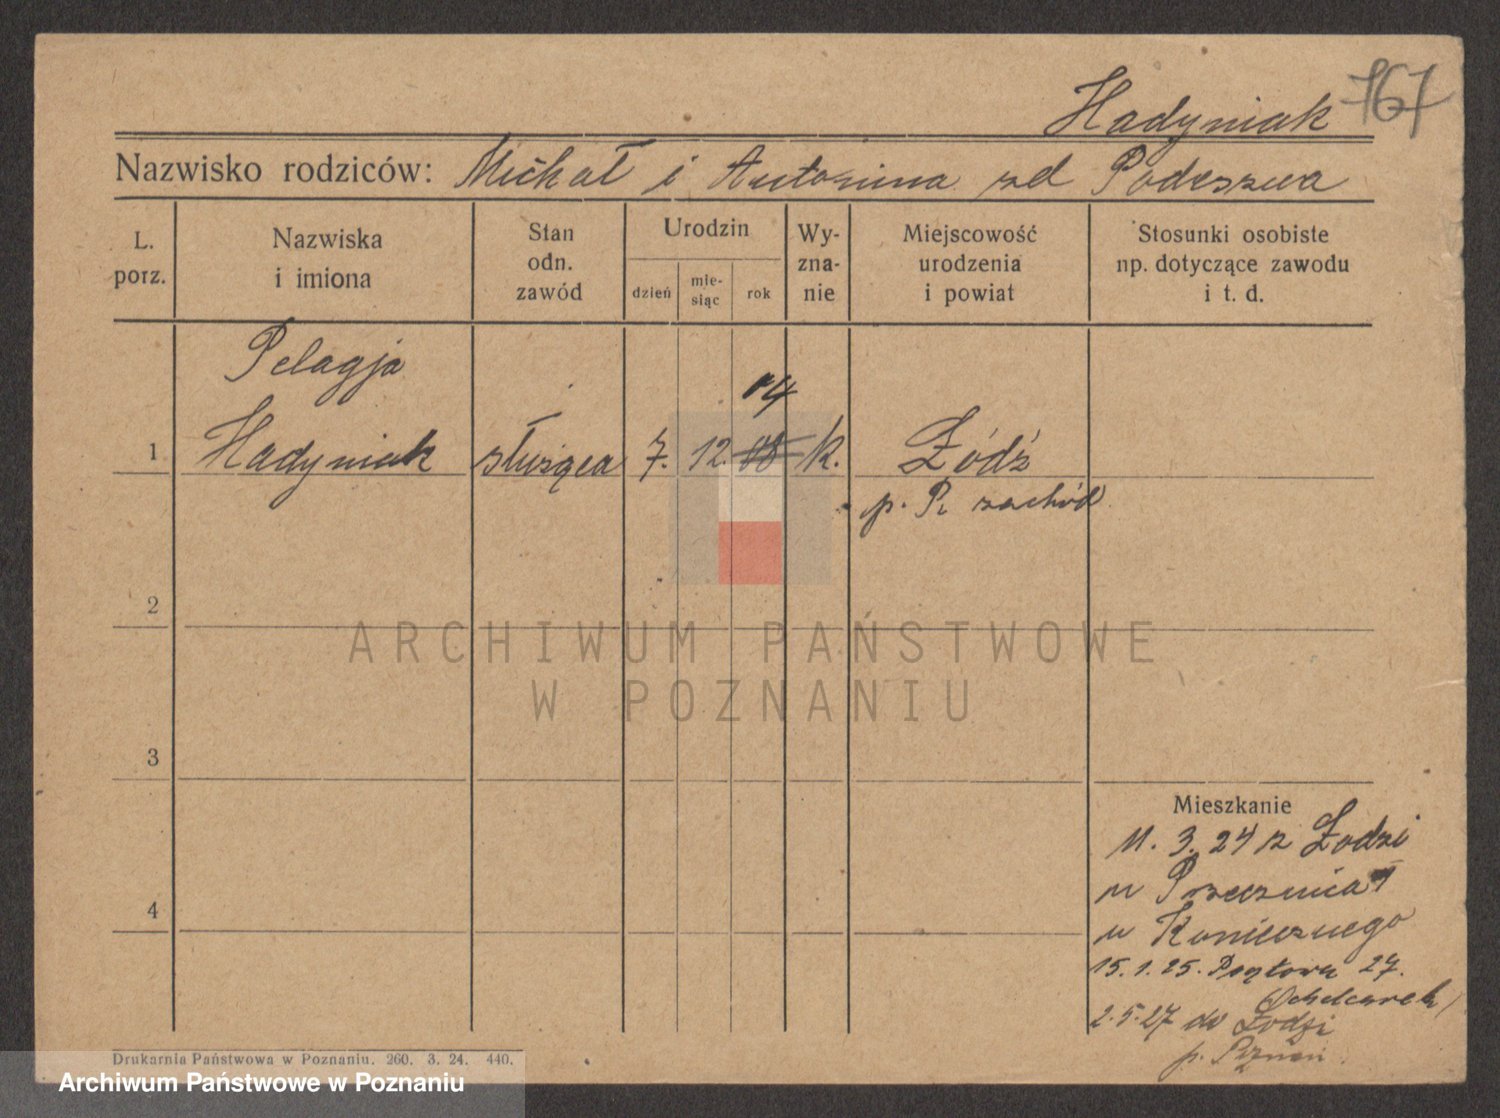 Hadyniak 767
Nazwisko rodziców: Michał i Antonina zd Podeszwa
L. porz.
Nazwiska i imiona
Stan odn. zawód
Urodzin
dzień
mie-
siąc
rok
Wy-
zna-
nie
Miejscowość
urodzenia
i powiat
Stosunki osobiste
np. dotyczące zawodu
i t. d.
Pelagja
04
1 Hadyniak służąca 7. 12. 08 k. Łódź
p. P. zachód
2
ARCHIWUM PAŃSTWOWE
W POZNANIU
3
Mieszkanie
11. 3. 24 z Łodzi
4
u Koniecznego
15.1.25. 27.
2.5.27 do Łodzi
p. Poznań
Drukarnia Państwowa w Poznaniu. 260. 3. 24. 440.
Archiwum Państwowe w Poznaniu